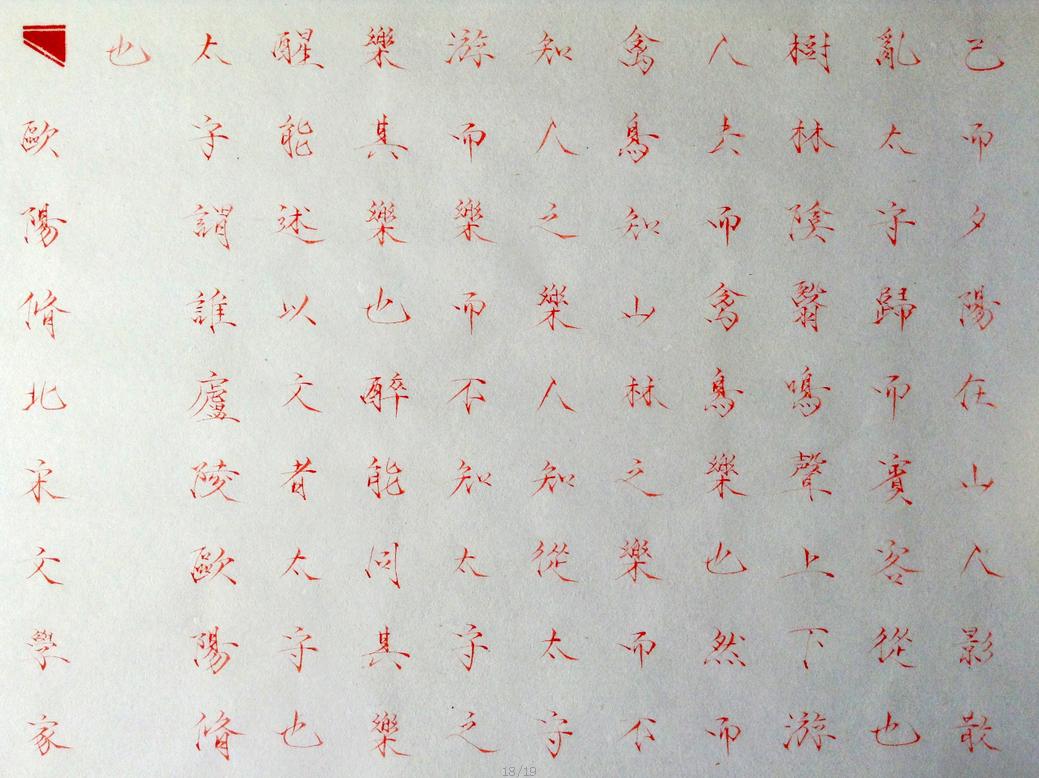 已而夕陽在山人影散
亂太守歸而賓客從也
樹林陰翳鳴聲上下游
人去而禽鳥樂也然而
禽鳥知山林之樂而不
知人之樂人知從太守
游而樂而不知太守之
樂其樂也醉能同其樂
醒能述以文者太守也
太守謂誰廬陵歐陽脩
也
歐陽脩北宋文學家
18/19